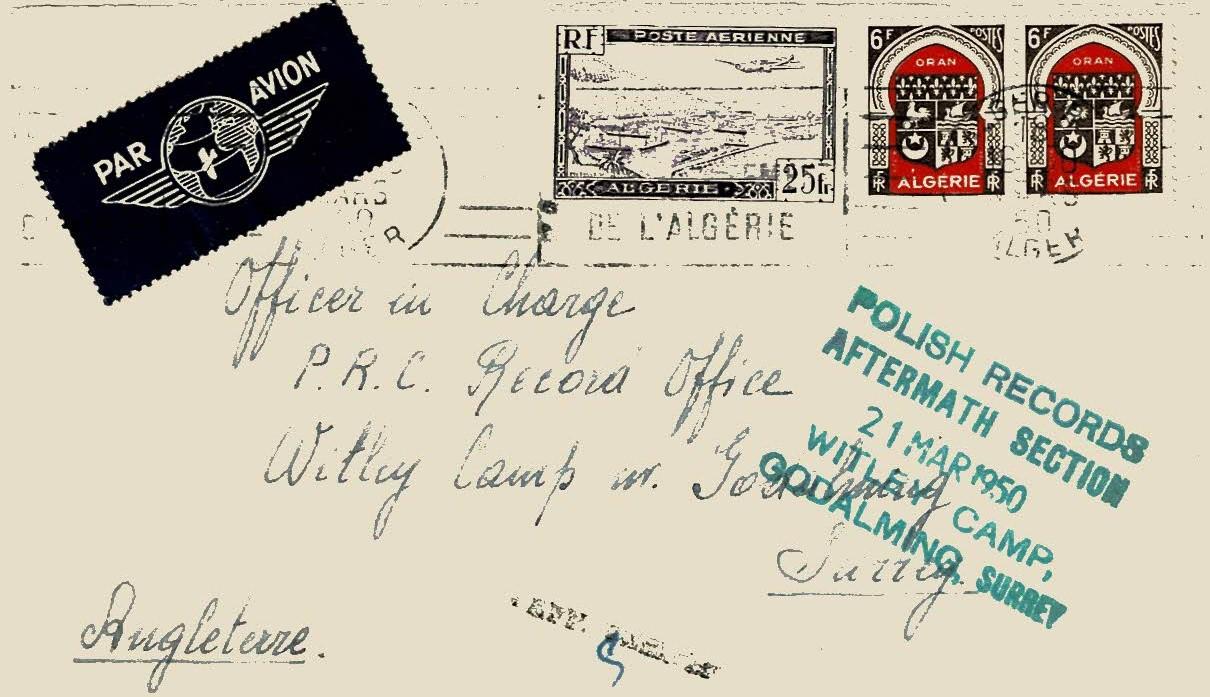 PAR AVION
RF POSTE AERIENNE
ALGERIE 25fr
6F POSTES
ORAN
RF ALGÉRIE
6F POSTES
ORAN
RF ALGÉRIE
DE L'ALGÉRIE
ALGER
Officer in Charge
P.R.C. Record Office
Witley Camp nr. Godalming
Surrey.
Angleterre.
POLISH RECORDS
AFTERMATH SECTION
21 MAR 1950
WITLEY CAMP,
GODALMING, SURREY